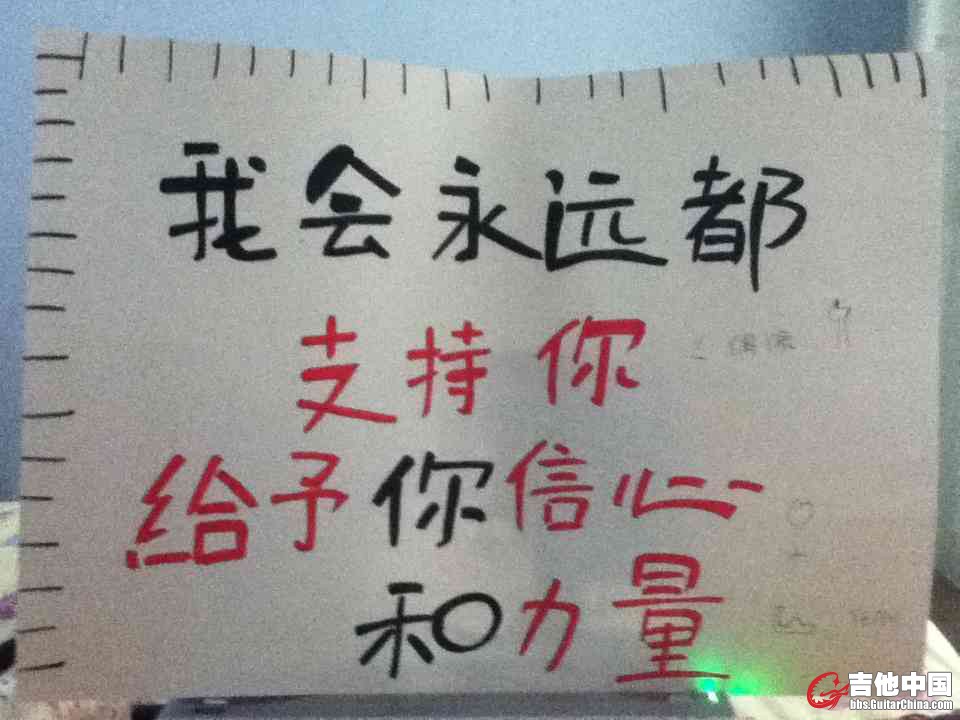 我会永远都
支持你
给予你信心
和力量
吉他中国
bbs.GuitarChina.com